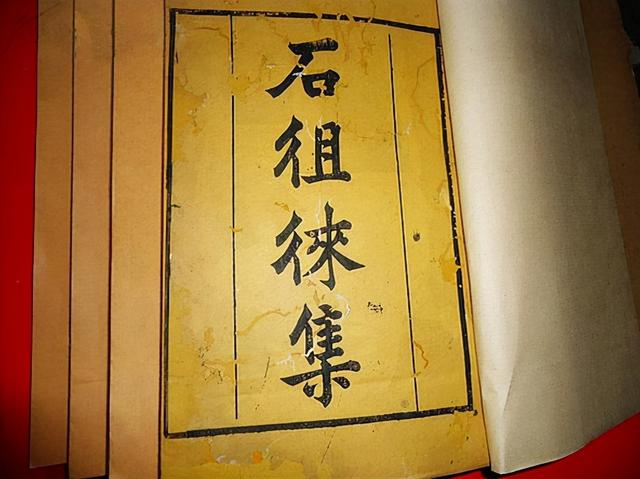 石徂徠集